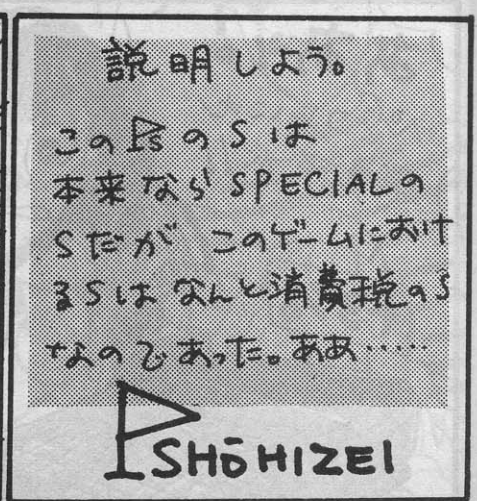 説明しよう。
このPsのSは
本来ならSPECIALの
Sだが このゲームにおけ
るSはなんと消費税のS
なのであった。ああ……
PSHŌHIZEI